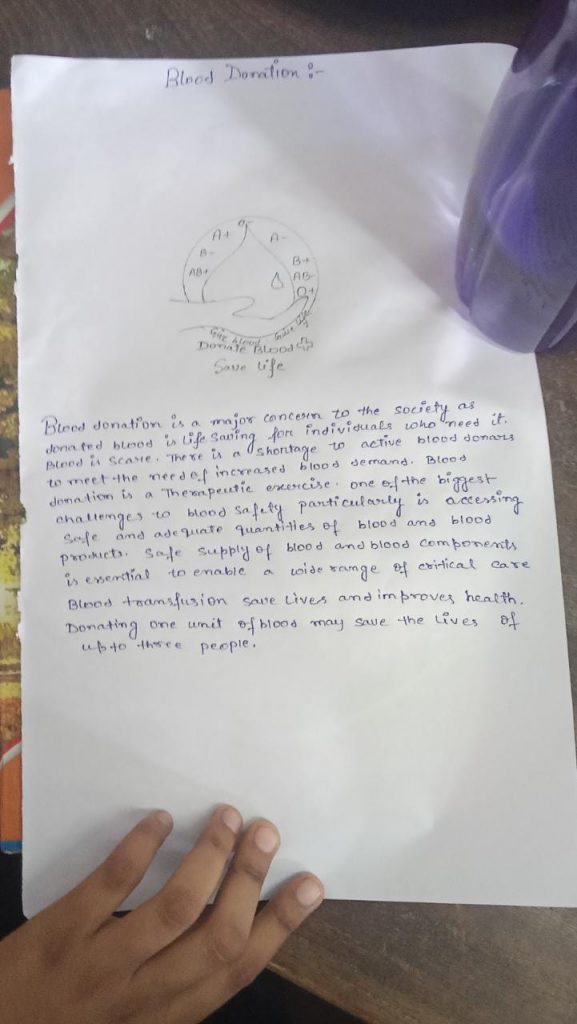 Blood Donation :-
O-
A+
A-
B-
B+
AB+
AB-
O+
Give blood Give life
Donate Blood
Save life
Blood donation is a major concern to the society as
donated blood is life saving for individuals who need it.
Blood is scarse. There is a shortage to active blood donars
to meet the need of increased blood demand. Blood
donation is a Therapeutic exercise. one of the biggest
challenges to blood safety particularly is accessing
safe and adequate quantities of blood and blood
products. Safe supply of blood and blood components
is essential to enable a wide range of critical care
Blood transfusion save lives and improves health.
Donating one unit of blood may save the lives of
upto three people.